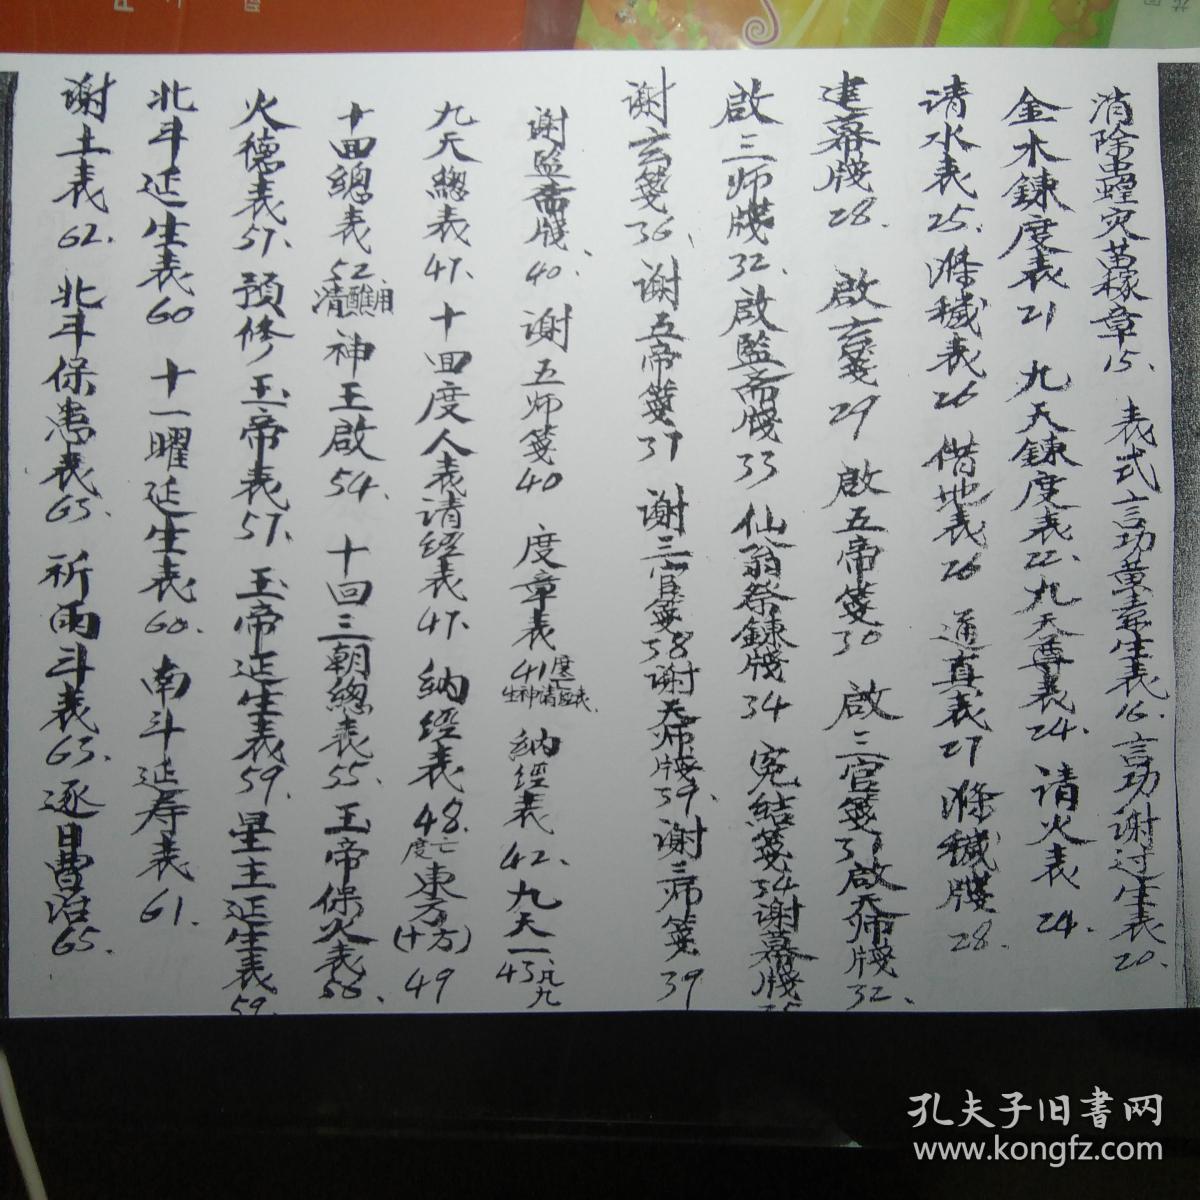 消除虫蝗灾苗稼章15、表式言功黄素生表16、言功谢过生表20、
金木鍊度表21 九天鍊度表22、九天尊表24、请火表24、
请水表25、滌穢表26 借地表26 通真表27 滌穢牋28、
建幕牋28、啟玄箋29 啟五帝箋30、啟三官箋31 啟天师牋32、
啟三师牋32、啟監斋牋33 仙翁祭鍊牋34 冤结箋34 谢幕牋35
谢玄箋36、谢五帝箋37 谢三官箋38 谢天师牋39、谢三师箋39
谢監斋牋、40、谢五师箋40 度章表41 度亡生神请经表、纳经表42、九天一凡九43
九天總表47、十回度人表请經表47、纳經表48、度亡東方(十方)49
十回總表52、清醮用 神王啟54、十回三朝總表55、玉帝保火表56、
火德表57、预修玉帝表57、玉帝延生表59、星主延生表59、
北斗延生表60 十一曜延生表60、南斗延寿表61、
谢土表62、北斗保患表63、祈雨斗表63、逐日曹治65、
孔夫子旧书网
www.kongfz.com